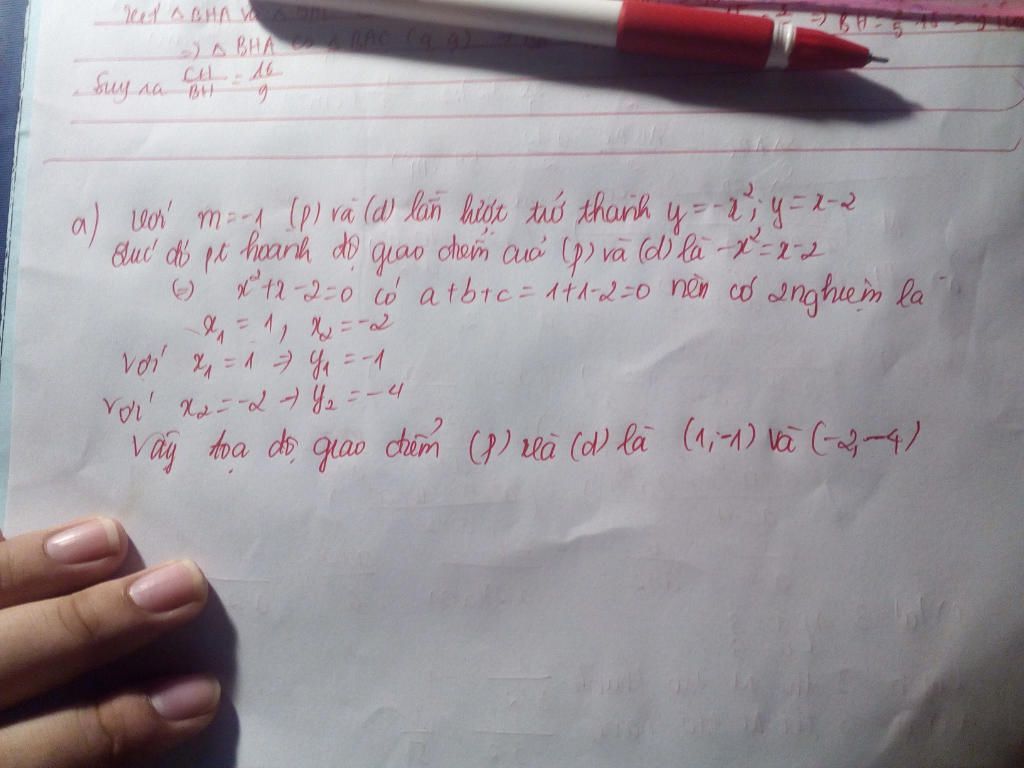 Xét △ BHA và △
=> △ BHA ∽ △ BAC (g g)
Suy ra CH/BH = 16/9
a) Với m = -1 (P) và (d) lần lượt trở thành y = -x²; y = x - 2
Lúc đó pt hoành độ giao điểm của (P) và (d) là -x² = x - 2
(=) x² + x - 2 = 0 có a + b + c = 1 + 1 - 2 = 0 nên có 2 nghiệm là
x₁ = 1, x₂ = -2
Với x₁ = 1 => y₁ = -1
Với x₂ = -2 -> y₂ = -4
Vậy tọa độ giao điểm (P) và (d) là (1, -1) và (-2, -4)